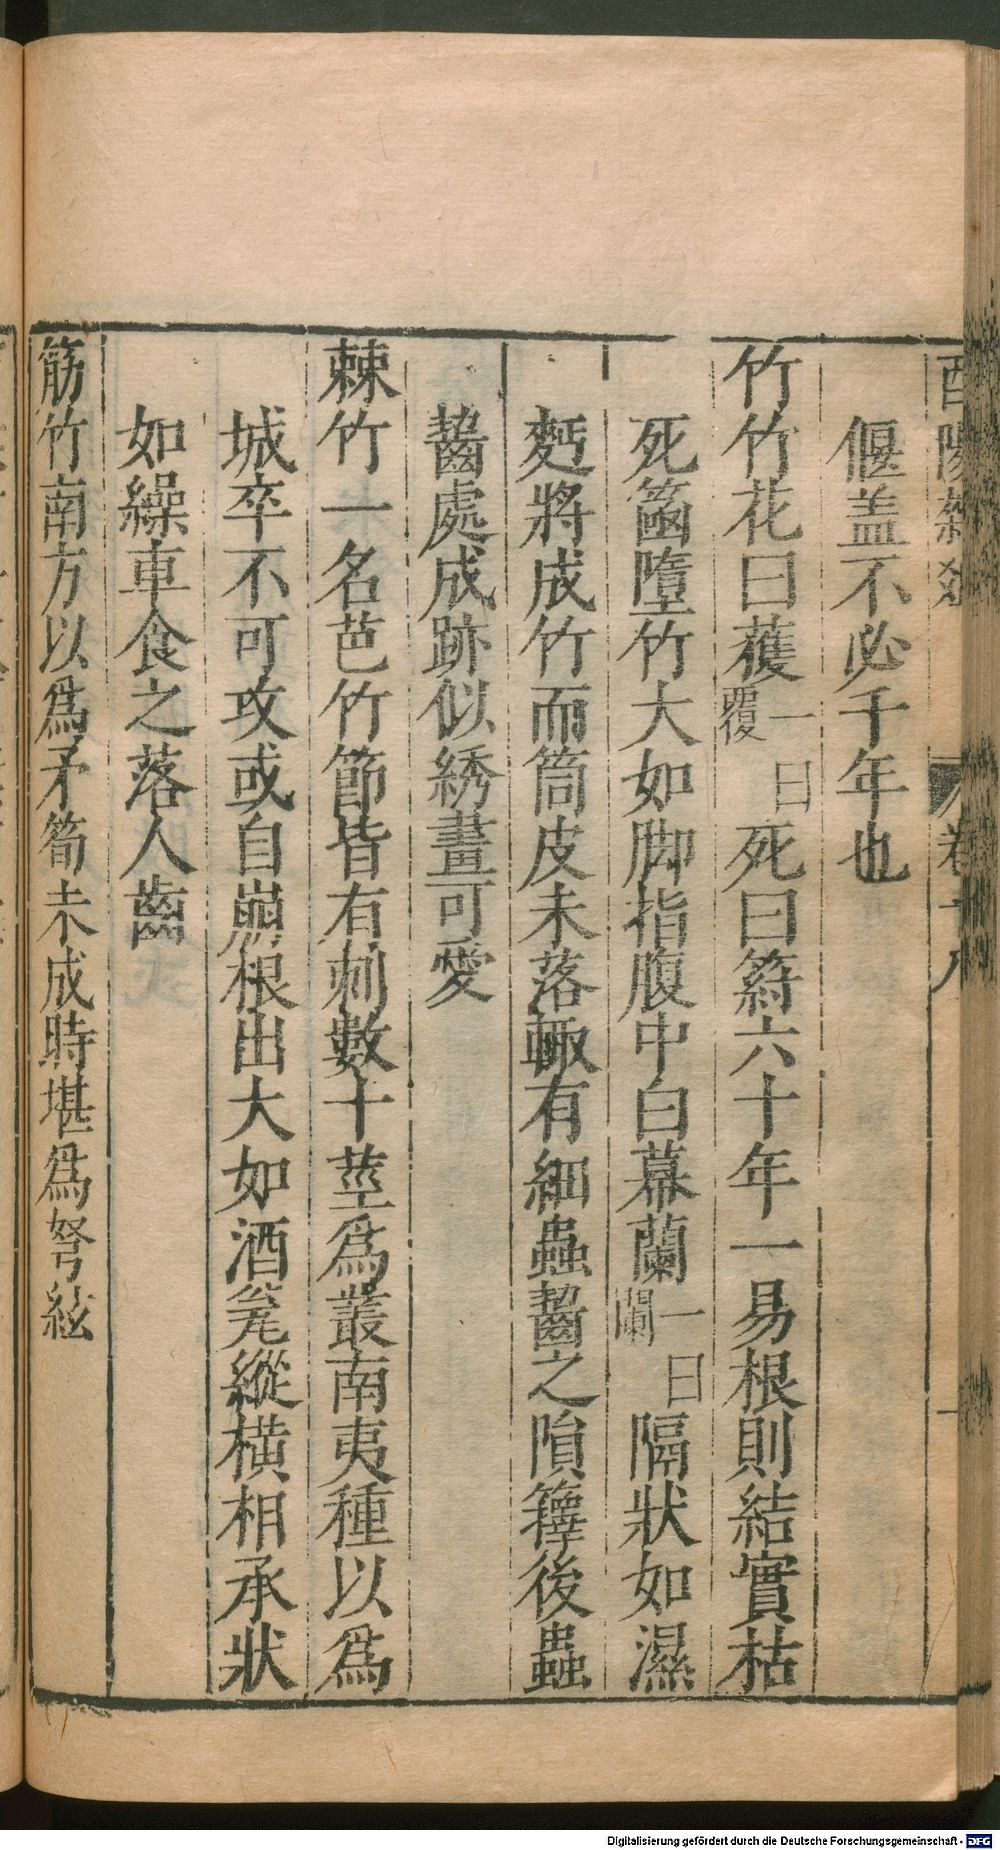 酉陽雜俎 卷十八
偃盖不必千年也
竹竹花曰䕶一曰覆死曰䈽六十年一易根則結實枯
死箘墮竹大如脚指腹中白幕蘭一曰闌隔狀如濕
麪將成竹而筒皮未落輙有細蟲齧之隕籜後蟲
齧處成跡似綉畫可愛
棘竹一名芭竹節皆有刺數十莖爲叢南夷種以爲
城卒不可攻或自崩根出大如酒瓮縱橫相承狀
如繰車食之落人齒
筋竹南方以爲矛筍未成時堪爲弩絃
Digitalisierung gefördert durch die Deutsche Forschungsgemeinschaft - DFG